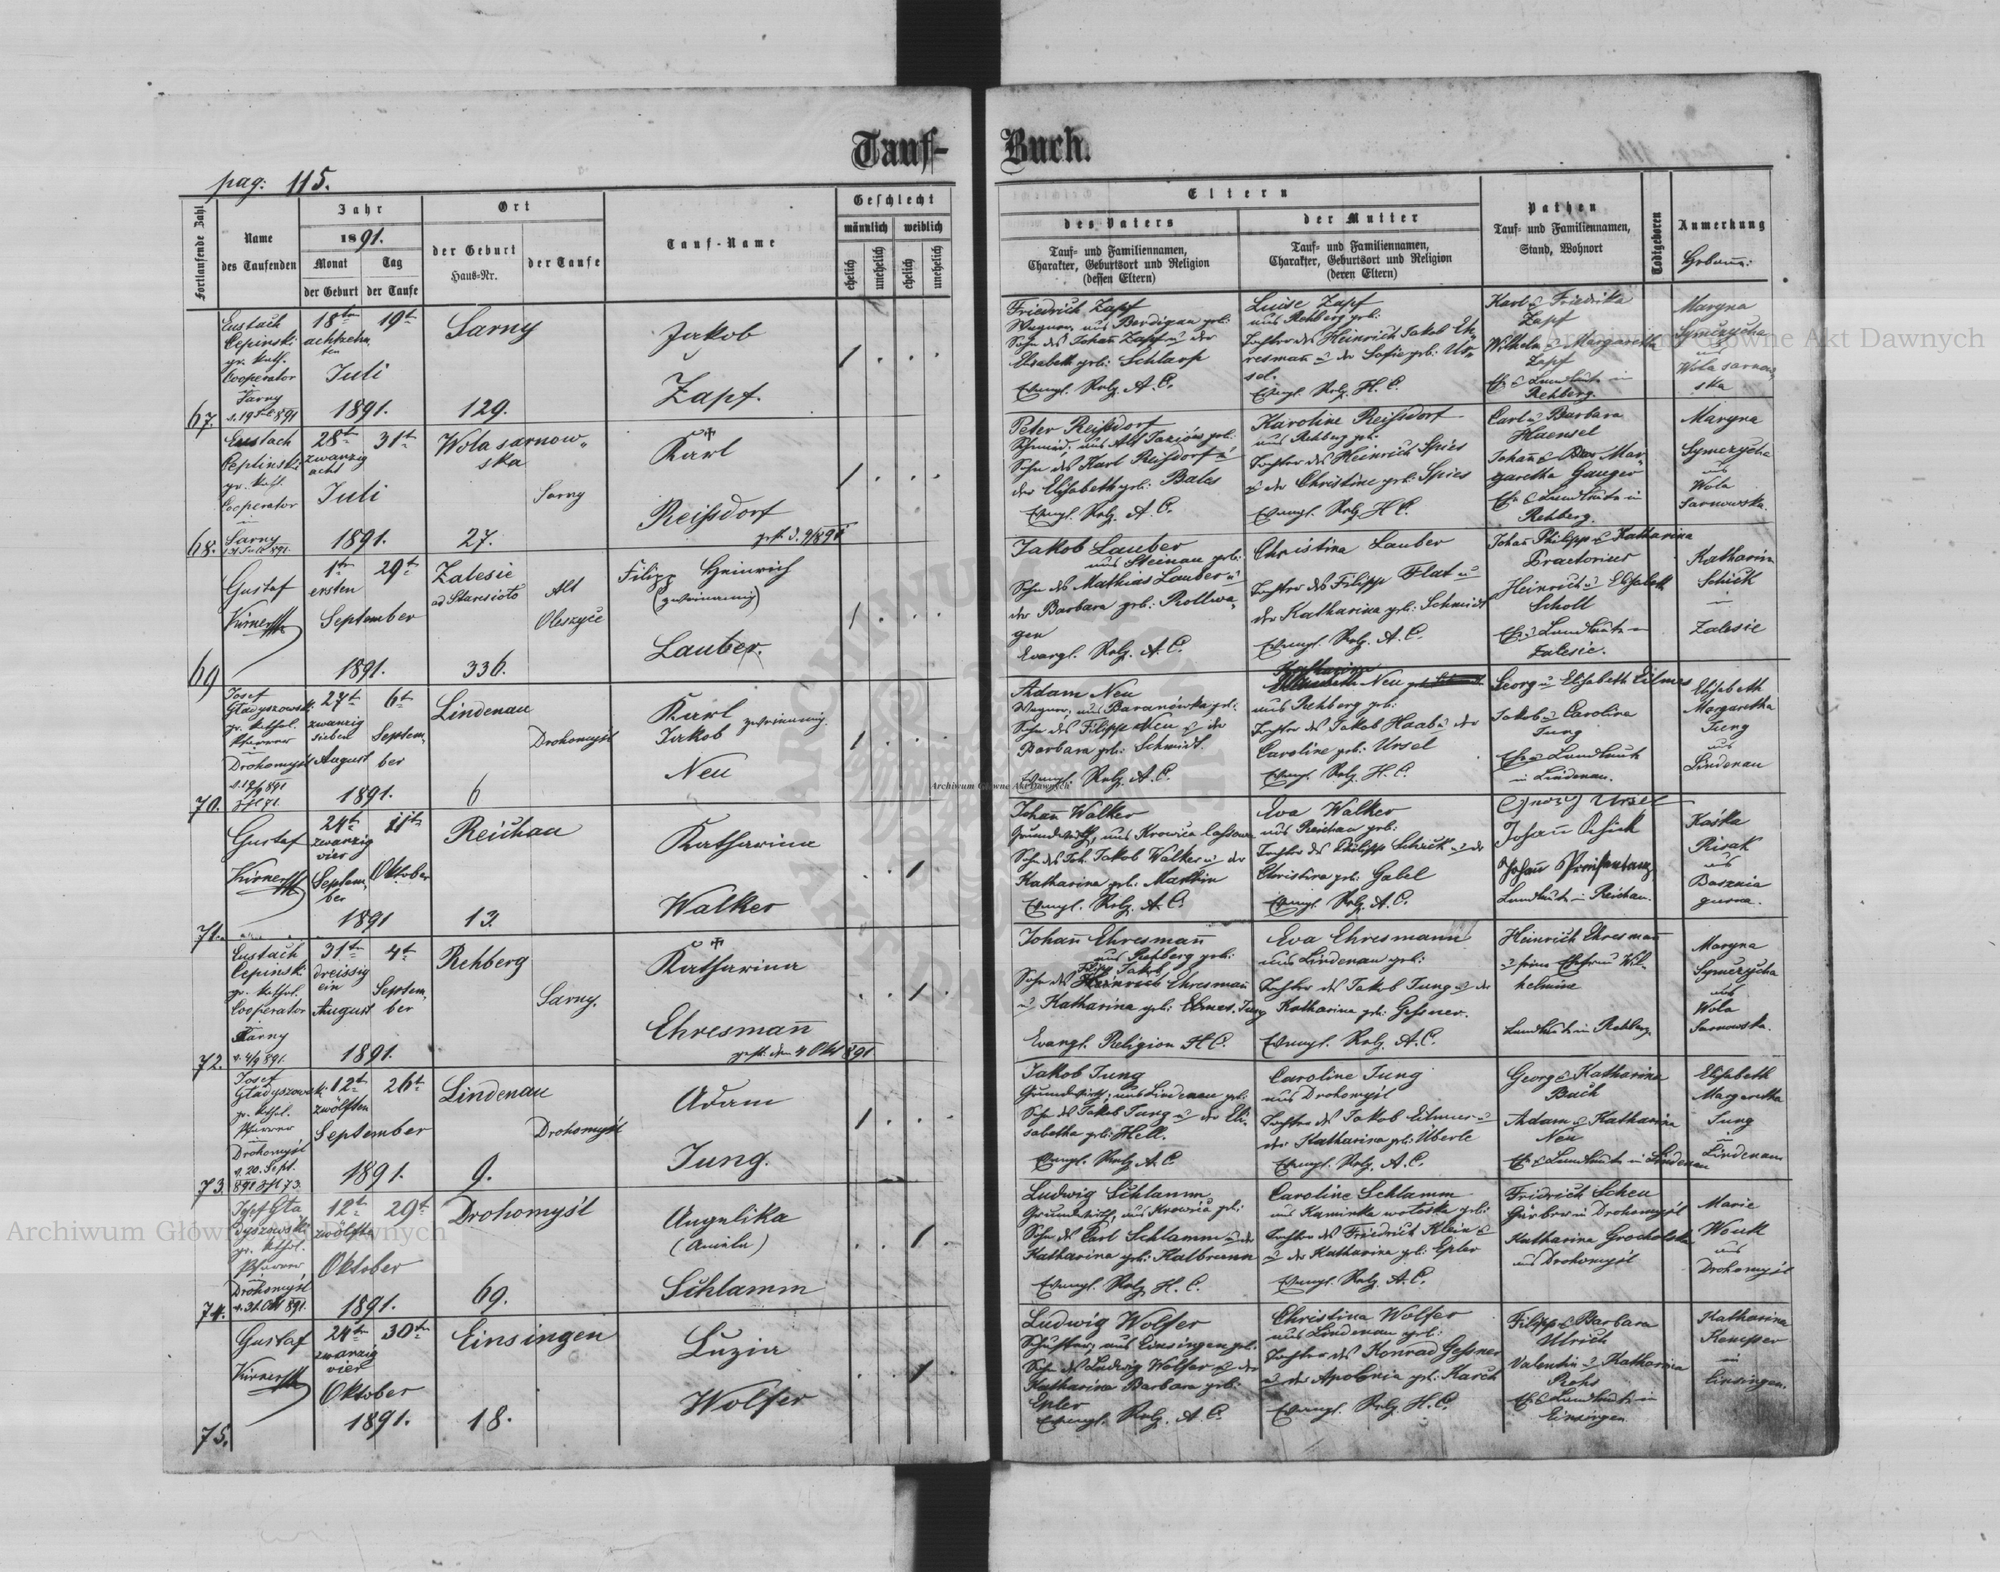 Tauf-
Buch.
pag: 115.
Fortlaufende Zahl
Name
des Taufenden
Jahr
1891.
Monat
Tag
der Geburt
der Taufe
Ort
der Geburt
Haus-Nr.
der Taufe
Tauf-Name
Geschlecht
männlich
weiblich
ehelich
unehelich
ehelich
unehelich
Eltern
des Vaters
Tauf- und Familiennamen,
Charakter, Geburtsort und Religion
(dessen Eltern)
der Mutter
Tauf- und Familiennamen,
Charakter, Geburtsort und Religion
(deren Eltern)
Pathen
Tauf- und Familiennamen,
Stand, Wohnort
Todtgeboren
Anmerkung
67.
Eustach
Cepinski
gr. kath.
Cooperator
in
Sarny
18ten
achtzehn
ten
Juli
1891.
19t
Sarny
129.
Jakob
Zapf.
Friedrich Zapf
Sohn des Johann Zapf u der
Elisabeth geb: Schlarp
Evangl. Relg. A.C.
Luise Zapf
aus Rehberg geb:
Tochter des Heinrich Jakob Eh,
resmañ u der Sofie geb: Ur,
sel.
Evangl. Relg. H.C.
Karl & Friedrika
Zapf
Wilhelm u Margareth
Zapf
Rehberg.
Maryna
Symczycha
Wola sarnow
ska
68.
Eustach
Ceplinski
gr. kath.
Cooperator
in
Sarny
28t
zwanzig
acht
Juli
1891.
31t
Wola sarnow,,
ska
27.
Sarny
Karl
Reißdorf
Peter Reißdorf
Sohn des Karl Reißdorf u
der Elisabeth geb: Bales
Evangl. Relg. A.C.
Karoline Reißdorf
aus Rehberg geb:
Tochter des Heinrich Spies
u der Christine geb: Spies
Evangl. Relg H.C.
Carl u Barbara
Haensel
Johañ & Mar,
garetha Gauger
Rehberg.
Maryna
Symczycha
aus
Wola
Sarnowska.
69
Gustaf
1ten
ersten
September
1891.
29t
Zalesie
336.
Alt
Oleszyce
Filipp Heinrich
Lauber.
Jakob Lauber
aus Steinau geb:
Sohn des Mathias Lauber u
der Barbara geb: Rollwa,
gen
Evangl. Relg. A.C.
Christina Lauber
Tochter des Filipp Flat u
der Katharina geb: Schmidt
Evangl. Relg. A.C.
Johañ Philipp & Katharina
Praetorius
Heinrich u Elisabeth
Scholl
Zalesie.
Katharina
Schick
Zalesie
70.
Josef
Gladyszowski
gr. kathol.
Pfarrer
in
Drohomysl
27t
zwanzig
sieben
August
1891.
6t
Septem,
ber
Lindenau
6
Drohomysl
Karl
Jakob
Neu
Adam Neu
Wagner, aus Baranówka geb:
Sohn des Filipp Neu u der
Barbara geb: Schmidt.
Evangl. Relg. A.C.
Katharina
Neu
aus Rehberg geb:
Tochter des Jakob Haab u der
Caroline geb: Ursel
Evangl. Relg. H.C.
Georg u Elisabeth Eilmes
Jakob u Carolina
Jung
in Lindenau.
Elisabeth
Margaretha
Jung
aus
Lindenau
71.
Gustaf
24t
zwanzig
vier
Septem,
ber
1891
11ten
Oktober
Reichau
13.
Katharina
Walker
Johañ Walker
Sohn des Joh. Jakob Walker u der
Katharina geb: Martin
Evangl. Relg. A.C.
Eva Walker
aus Reichau geb:
Tochter des Philipp Schick u der
Christina geb: Gabel
Evangl. Relg. A.C.
Johañ Schick
Landleute in Reichau.
Kaśka
Rivak
aus
72.
Eustach
Cepinski
gr. kathol.
Cooperator
in
Sarny
31ten
dreissig
ein
August
1891.
4t
Septem,
ber
Rehberg
Sarny.
Katharina
Ehresmañ
gest. den 4 Okt 891
Johañ Ehresmañ
aus Rehberg geb:
Sohn des Ehresmañ
Evangl. Religion H.C.
Eva Ehresmann
aus Lindenau geb:
Tochter des Jakob Jung u der
Katharina geb: Gessner.
Evangl. Relg. A.C.
Heinrich Ehresmañ
u seine Ehefrau Wil-
helmine
Landleute in Rehberg.
Maryna
Symczycha
aus
Wola
Sarnowska.
73.
Josef
Gladyszowski
gr. kathol.
Pfarrer
in
Drohomysl
12t
zwölften
September
1891.
26t
Lindenau
9.
Drohomysl
Adam
Jung.
Jakob Jung
Grundwirth, aus Lindenau geb:
Sohn des Jakob Jung u der Eli,
sabetha geb: Hell.
Evangl. Relg. A.C.
Caroline Jung
aus Drohomysl
Tochter des Jakob Eilmes u
der Katharina geb: Uberle
Evangl. Relg. A.C.
Georg & Katharina
Buch
Adam & Katharina
Neu
Elisabeth
Margaretha
Jung
in
Lindenau
74.
Josef Gla
dyszowski
gr. kathol.
Pfarrer
in
Drohomysl
12t
zwölften
Oktober
1891.
29t
Drohomysl
69.
Angelika
(Aniela)
Schlamm
Ludwig Schlamm
Grundwirth, aus Krowica geb:
Sohn des Carl Schlamm u der
Katharina geb: Halbrunn
Evangl. Relg. H.C.
Caroline Schlamm
aus Kaminka wołoska geb:
Tochter des Friedrich Klein &
u der Katharina geb: Epler
Evangl. Relg. A.C.
Fridrich Scheu
Gärber in Drohomysl
Katharina Grocholska
aus Drohomysl
Marie
Wouk
aus
Drohomysl
75.
Gustaf
24ten
zwanzig
vier
Oktober
1891.
30t
Einsingen
18.
Luzia
Wolfer
Ludwig Wolfer
Schuster, aus Einsingen geb:
Sohn des Ludwig Wolfer u der
Katharina Barbara geb:
Epler
Evangl. Relg. A.C.
Christina Wolfer
aus Lindenau geb:
Tochter des Konrad Gessner
u der Apolonia geb: Karch
Evangl. Relg. H.C.
Filipp & Barbara
Ulrich
Valentin u Katharina
Rohs
Einsingen
Katharina
in
Einsingen.
Archiwum Główne Akt Dawnych
Archiwum Główne Akt Dawnych
Archiwum Główne Akt Dawnych